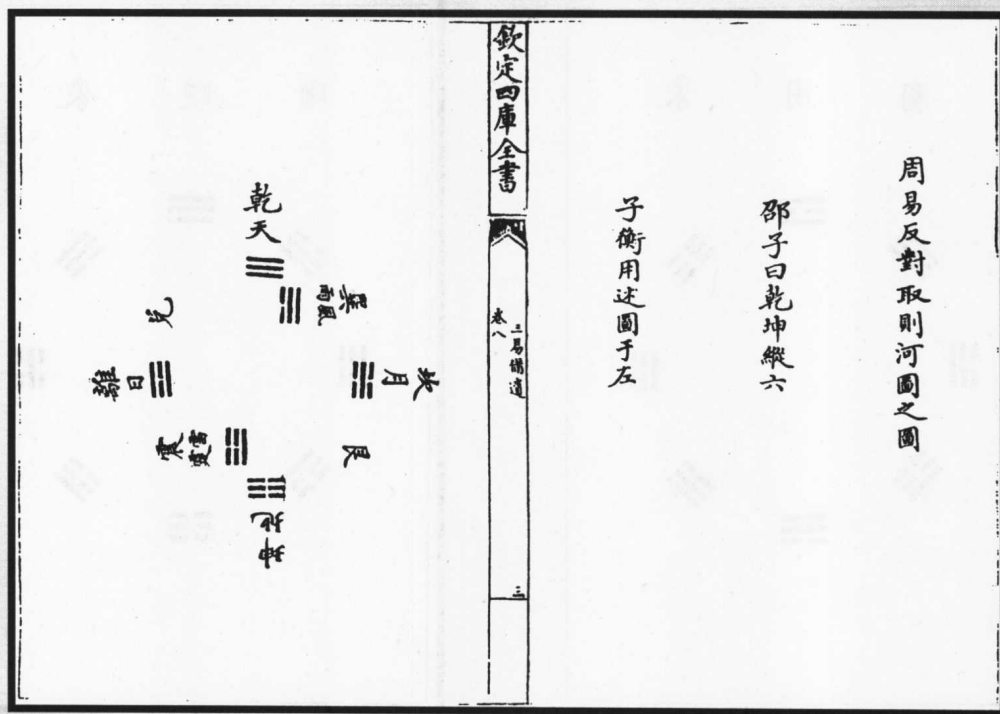 周易反對取則河圖之圖
邵子曰乾坤縱六
子衡用述圖于左
欽定四庫全書
三易備遺
卷八
三
乾天
巽
雨風
兌
坎月
離
日
艮
震
雷霆
坤地